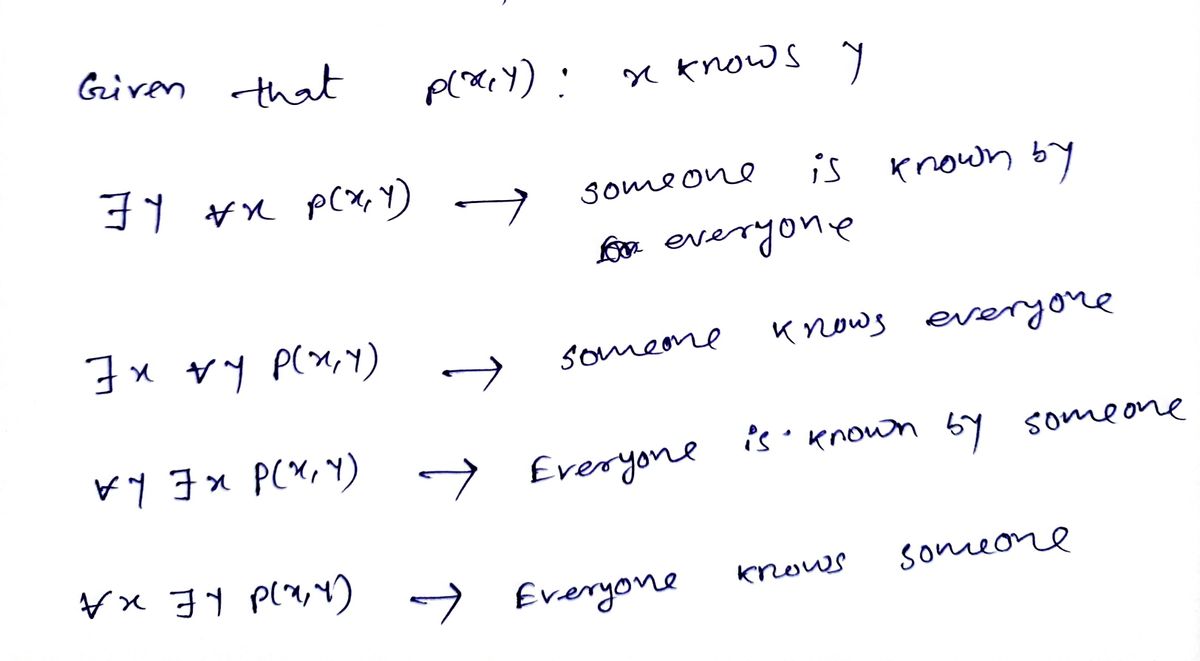 Given that p(x,y) : x knows y
∃y ∀x p(x,y) → someone is known by
everyone
∃x ∀y P(x,y) → someone knows everyone
∀y ∃x P(x,y) → Everyone is known by someone
∀x ∃y P(x,y) → Everyone knows someone